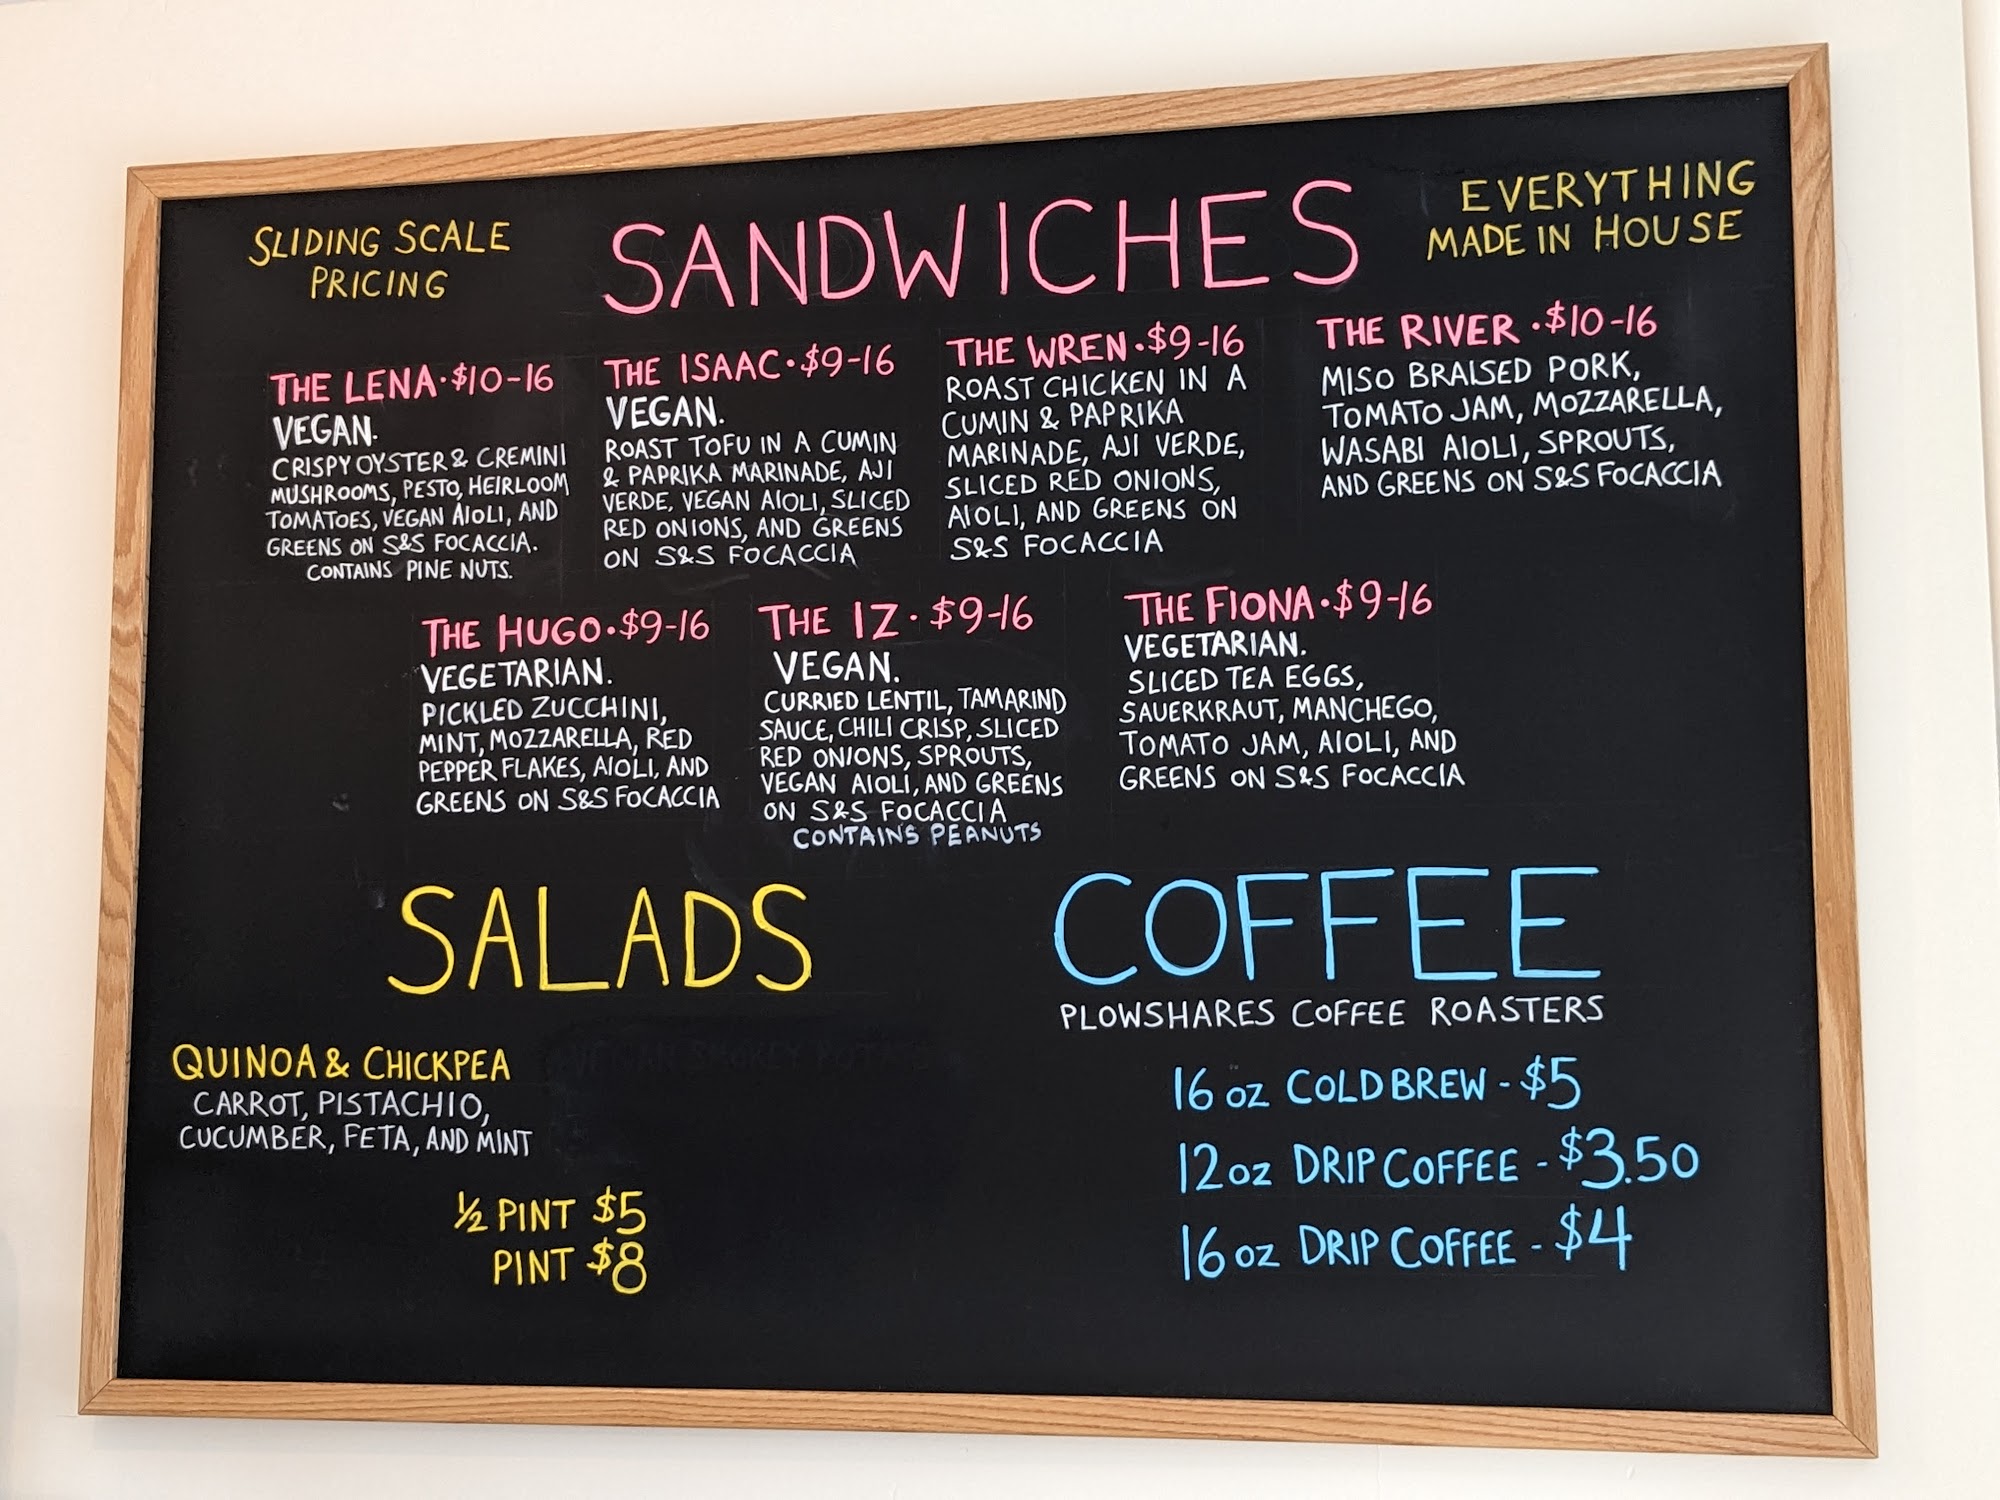 SLIDING SCALE
PRICING
SANDWICHES
EVERYTHING
MADE IN HOUSE
THE LENA • $10-16
VEGAN.
CRISPY OYSTER & CREMINI
MUSHROOMS, PESTO, HEIRLOOM
TOMATOES, VEGAN AIOLI, AND
GREENS ON S&S FOCACCIA.
CONTAINS PINE NUTS.
THE ISAAC • $9-16
VEGAN.
ROAST TOFU IN A CUMIN
& PAPRIKA MARINADE, AJI
VERDE, VEGAN AIOLI, SLICED
RED ONIONS, AND GREENS
ON S&S FOCACCIA
THE WREN • $9-16
ROAST CHICKEN IN A
CUMIN & PAPRIKA
MARINADE, AJI VERDE,
SLICED RED ONIONS,
AIOLI, AND GREENS ON
S&S FOCACCIA
THE RIVER • $10-16
MISO BRAISED PORK,
TOMATO JAM, MOZZARELLA,
WASABI AIOLI, SPROUTS,
AND GREENS ON S&S FOCACCIA
THE HUGO • $9-16
VEGETARIAN.
PICKLED ZUCCHINI,
MINT, MOZZARELLA, RED
PEPPER FLAKES, AIOLI, AND
GREENS ON S&S FOCACCIA
THE IZ • $9-16
VEGAN.
CURRIED LENTIL, TAMARIND
SAUCE, CHILI CRISP, SLICED
RED ONIONS, SPROUTS,
VEGAN AIOLI, AND GREENS
ON S&S FOCACCIA
CONTAINS PEANUTS
THE FIONA • $9-16
VEGETARIAN.
SLICED TEA EGGS,
SAUERKRAUT, MANCHEGO,
TOMATO JAM, AIOLI, AND
GREENS ON S&S FOCACCIA
SALADS
QUINOA & CHICKPEA
CARROT, PISTACHIO,
CUCUMBER, FETA, AND MINT
½ PINT $5
PINT $8
COFFEE
PLOWSHARES COFFEE ROASTERS
16 OZ COLD BREW - $5
12 OZ DRIP COFFEE - $3.50
16 OZ DRIP COFFEE - $4